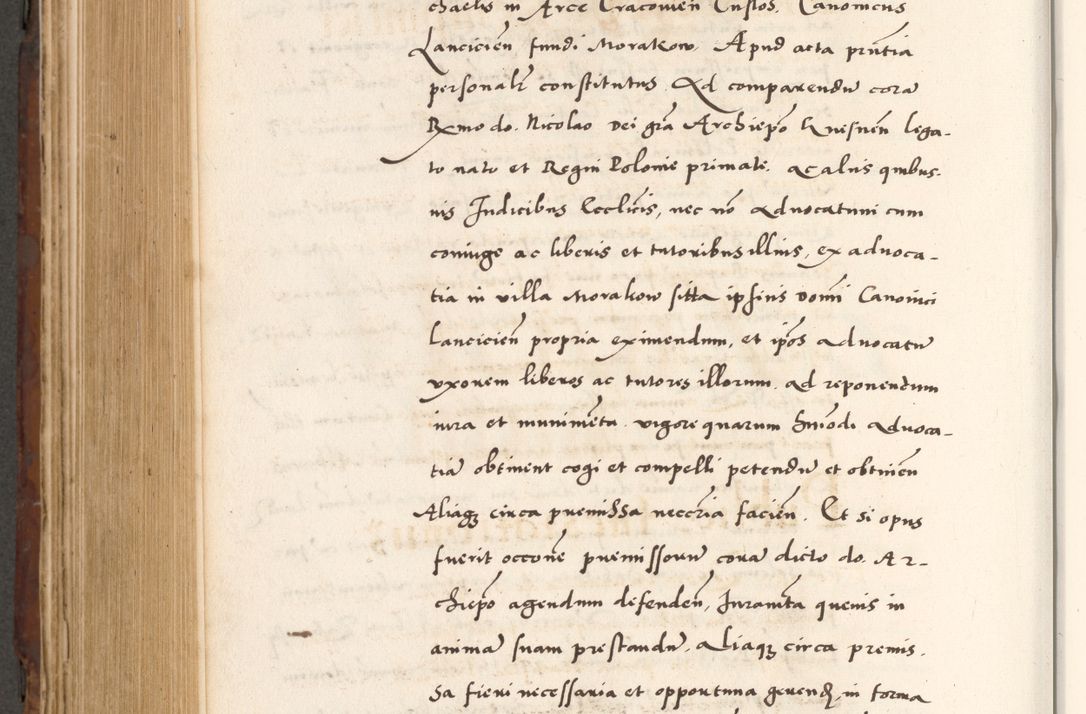 chaelis in Arce Cracovien Custos, Canonicus
Lancicien fundi Morakow. Apud acta pñtia
personalr constitutus. Ad comparendũ corã
Rxmo do. Nicolao Dei grã Archiepõ Gnesneñ lega-
to nato et Regni Polonie primate, ac aliis quibus-
vis Judicibus Eccl̃icis, nec nõ advocatum cum
coniuge ac liberis et tutoribus illius, ex advoca-
tia in villa Morakow sitta ipsius Domi Canonici
Lancicieñ propria eximendum, et ip̃os advocatũ
uxorem liberos ac tutores illorum, ad reponendum
iura et munimẽta, vigore quarum hm̃odi advoca-
tiã obtinent cogi et compelli petendũ et obtineñ
Aliaqꝫ circa premissa neccr̃ia facieñ. Et si opus
fuerit occõne premissorũ corã dicto do. Ar-
chiepõ agendum defendeñ, Juramẽta quevis in
animã suam prestandũ, Aliaqꝫ circa premis-
sa fieri necessaria et opportuna gerend, in forma